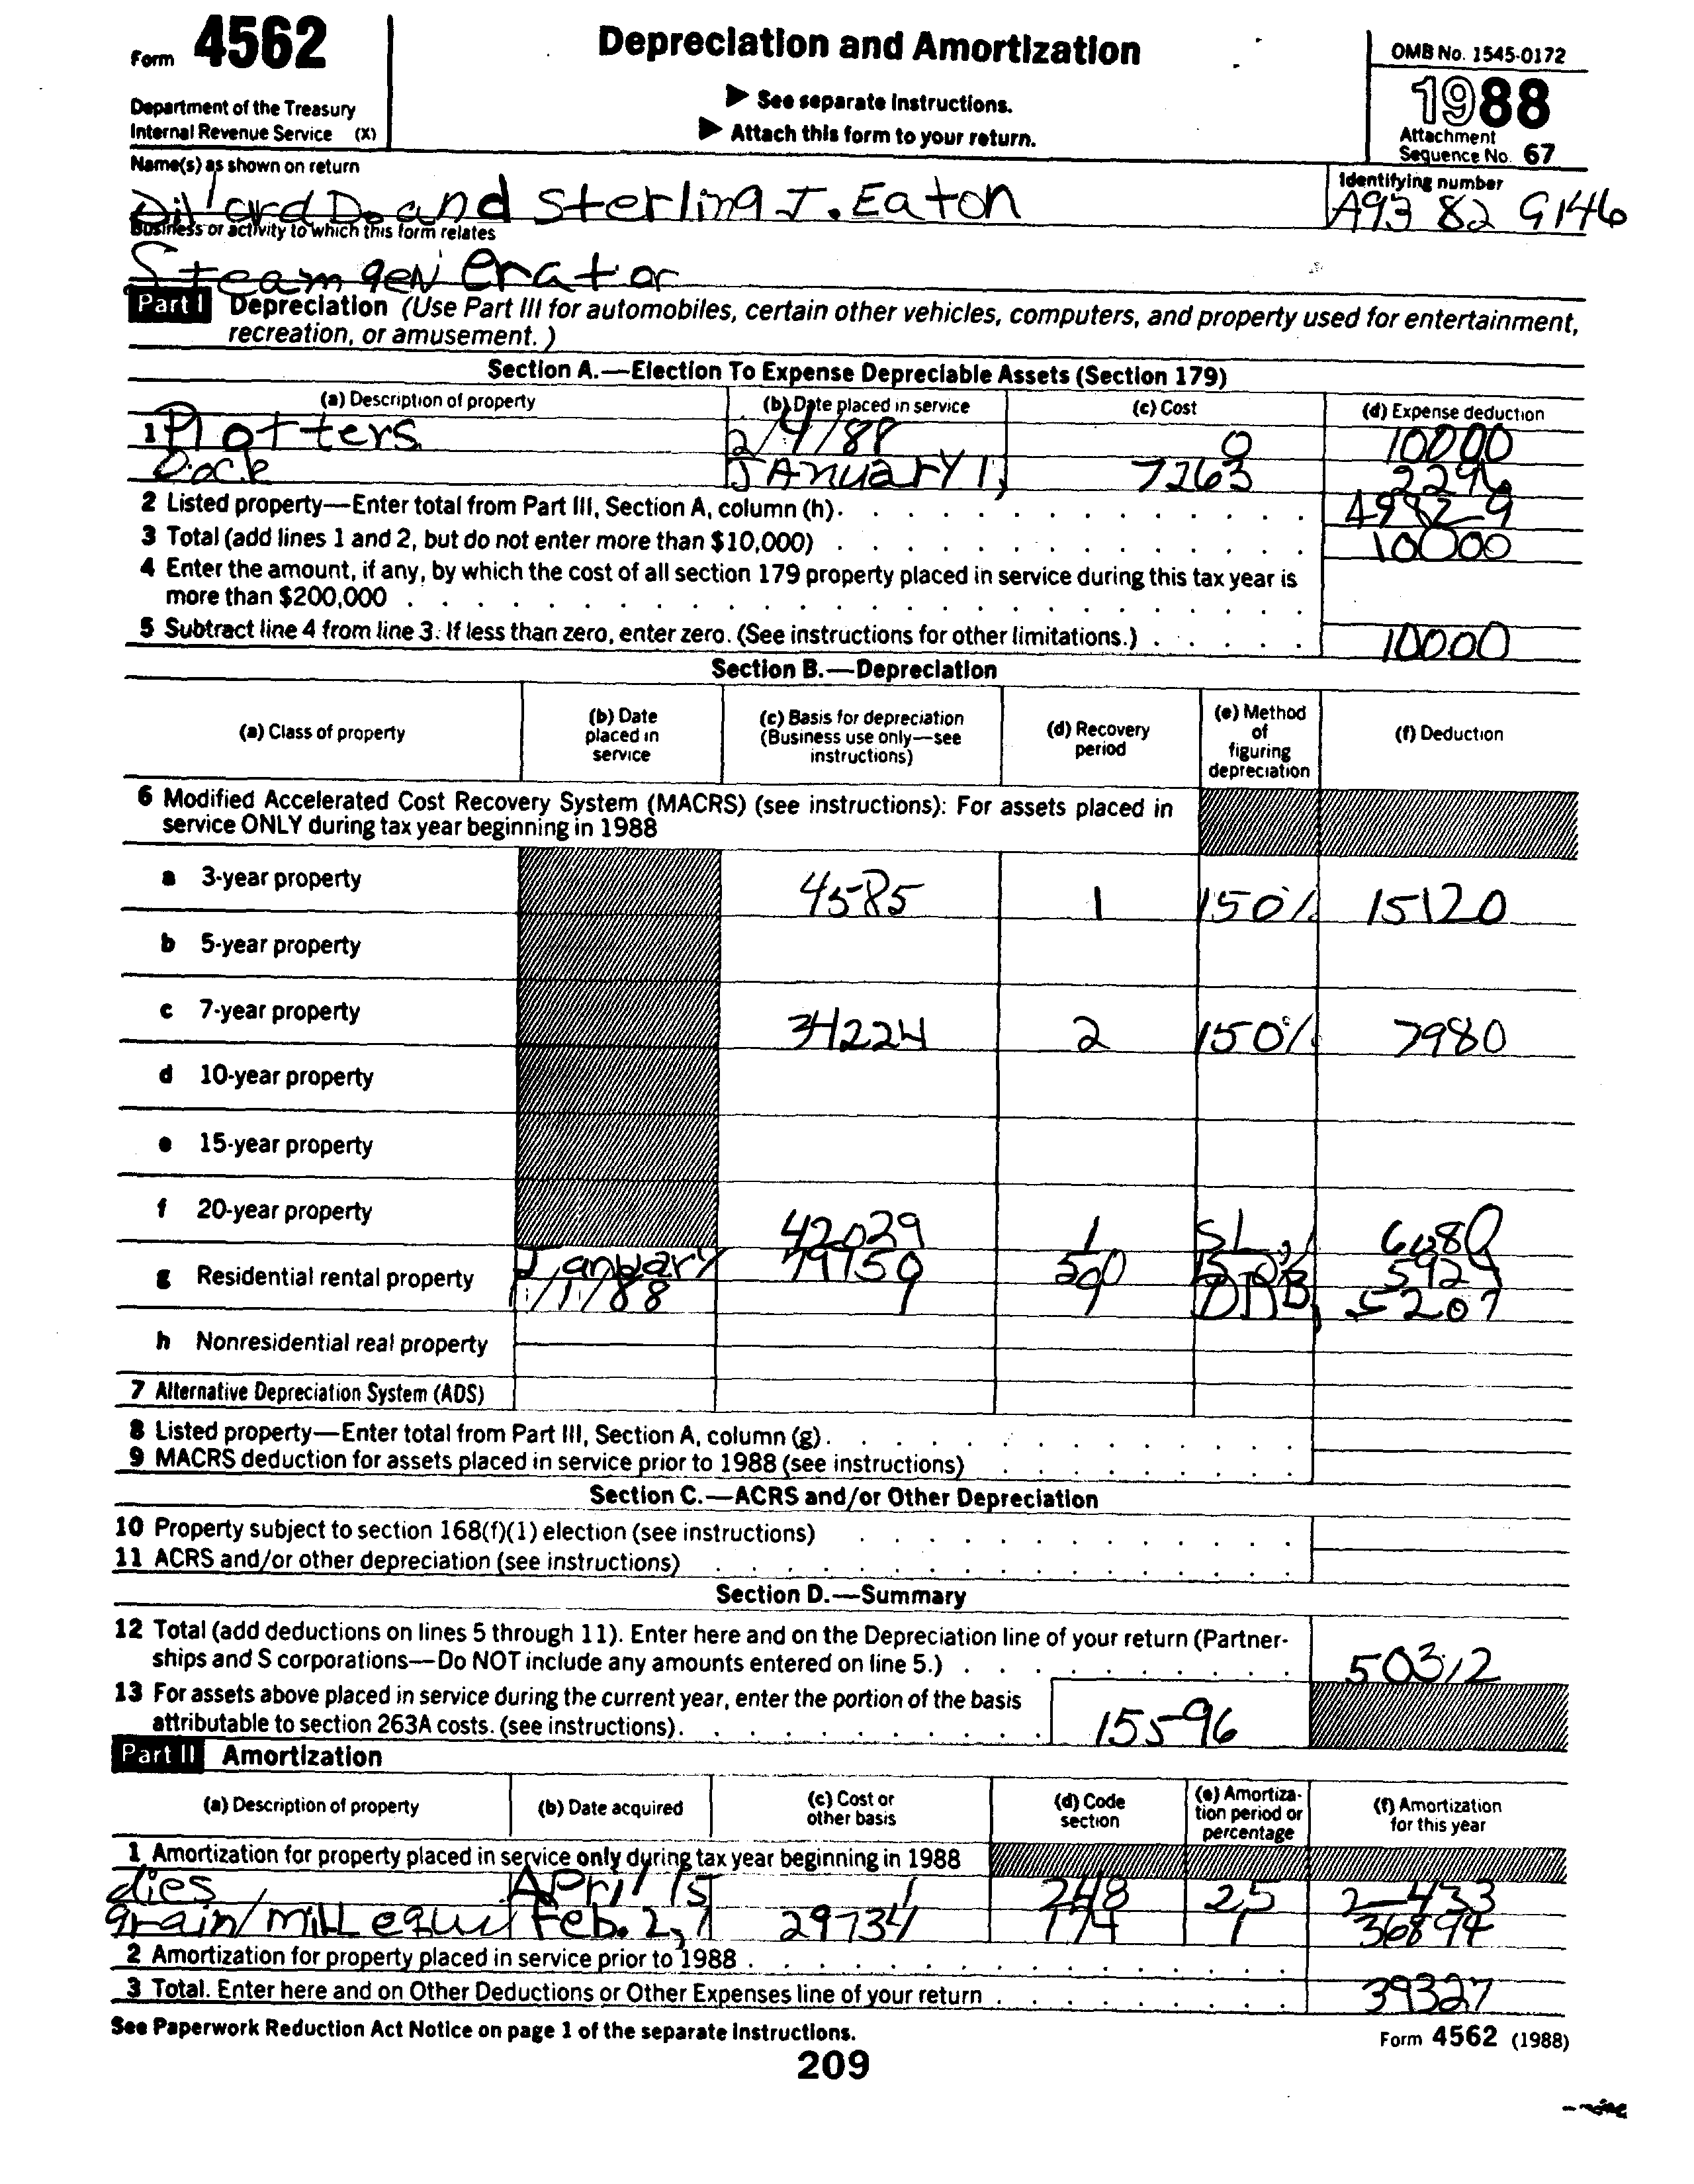 Form 4562
Depreciation and Amortization
OMB No. 1545-0172
1988
Department of the Treasury
Internal Revenue Service (X)
▶ See separate Instructions.
▶ Attach this form to your return.
Attachment
Sequence No. 67
Name(s) as shown on return
Identifying number
Dillard D. and Sterling J. Eaton
A93 82 9146
Business or activity to which this form relates
Steam generator
Part I Depreciation (Use Part III for automobiles, certain other vehicles, computers, and property used for entertainment,
recreation, or amusement.)
Section A.—Election To Expense Depreciable Assets (Section 179)
(a) Description of property (b) Date placed in service (c) Cost (d) Expense deduction
1 Plotters 2/4/88 0 10000
Dock January 1, 7263
2 Listed property—Enter total from Part III, Section A, column (h).
3 Total (add lines 1 and 2, but do not enter more than $10,000) 10000
4 Enter the amount, if any, by which the cost of all section 179 property placed in service during this tax year is
more than $200,000
5 Subtract line 4 from line 3. If less than zero, enter zero. (See instructions for other limitations.) 10000
Section B.—Depreciation
(a) Class of property (b) Date placed in service (c) Basis for depreciation (Business use only—see instructions) (d) Recovery period (e) Method of figuring depreciation (f) Deduction
6 Modified Accelerated Cost Recovery System (MACRS) (see instructions): For assets placed in
service ONLY during tax year beginning in 1988
a 3-year property 4585 1 150% 15120
b 5-year property
c 7-year property 34224 2 150% 7980
d 10-year property
e 15-year property
f 20-year property 42029 1 SL
g Residential rental property January 1/1/88 150% DDB
h Nonresidential real property
7 Alternative Depreciation System (ADS)
8 Listed property—Enter total from Part III, Section A, column (g).
9 MACRS deduction for assets placed in service prior to 1988 (see instructions)
Section C.—ACRS and/or Other Depreciation
10 Property subject to section 168(f)(1) election (see instructions)
11 ACRS and/or other depreciation (see instructions)
Section D.—Summary
12 Total (add deductions on lines 5 through 11). Enter here and on the Depreciation line of your return (Partner-
ships and S corporations—Do NOT include any amounts entered on line 5.) 50312
13 For assets above placed in service during the current year, enter the portion of the basis
attributable to section 263A costs. (see instructions). 15596
Part II Amortization
(a) Description of property (b) Date acquired (c) Cost or other basis (d) Code section (e) Amortization period or percentage (f) Amortization for this year
1 Amortization for property placed in service only during tax year beginning in 1988
dies April 15 1 248 25 2433
grain/mill equi Feb. 2, 29734 174 1 36894
2 Amortization for property placed in service prior to 1988
3 Total. Enter here and on Other Deductions or Other Expenses line of your return 39327
See Paperwork Reduction Act Notice on page 1 of the separate Instructions.
Form 4562 (1988)
209